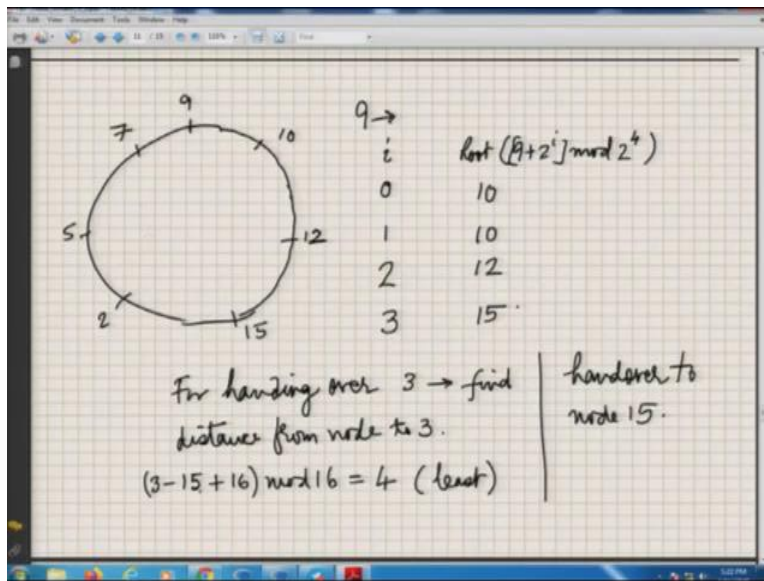 File Edit View Document Tools Window Help
11 / 15
Find
9
7
10
5
12
2
15
9→
i Root ([9+2^i] mod 2^4)
0 10
1 10
2 12
3 15
For handing over 3 → find
distance from node to 3.
(3-15+16) mod 16 = 4 (least)
handover to
node 15.